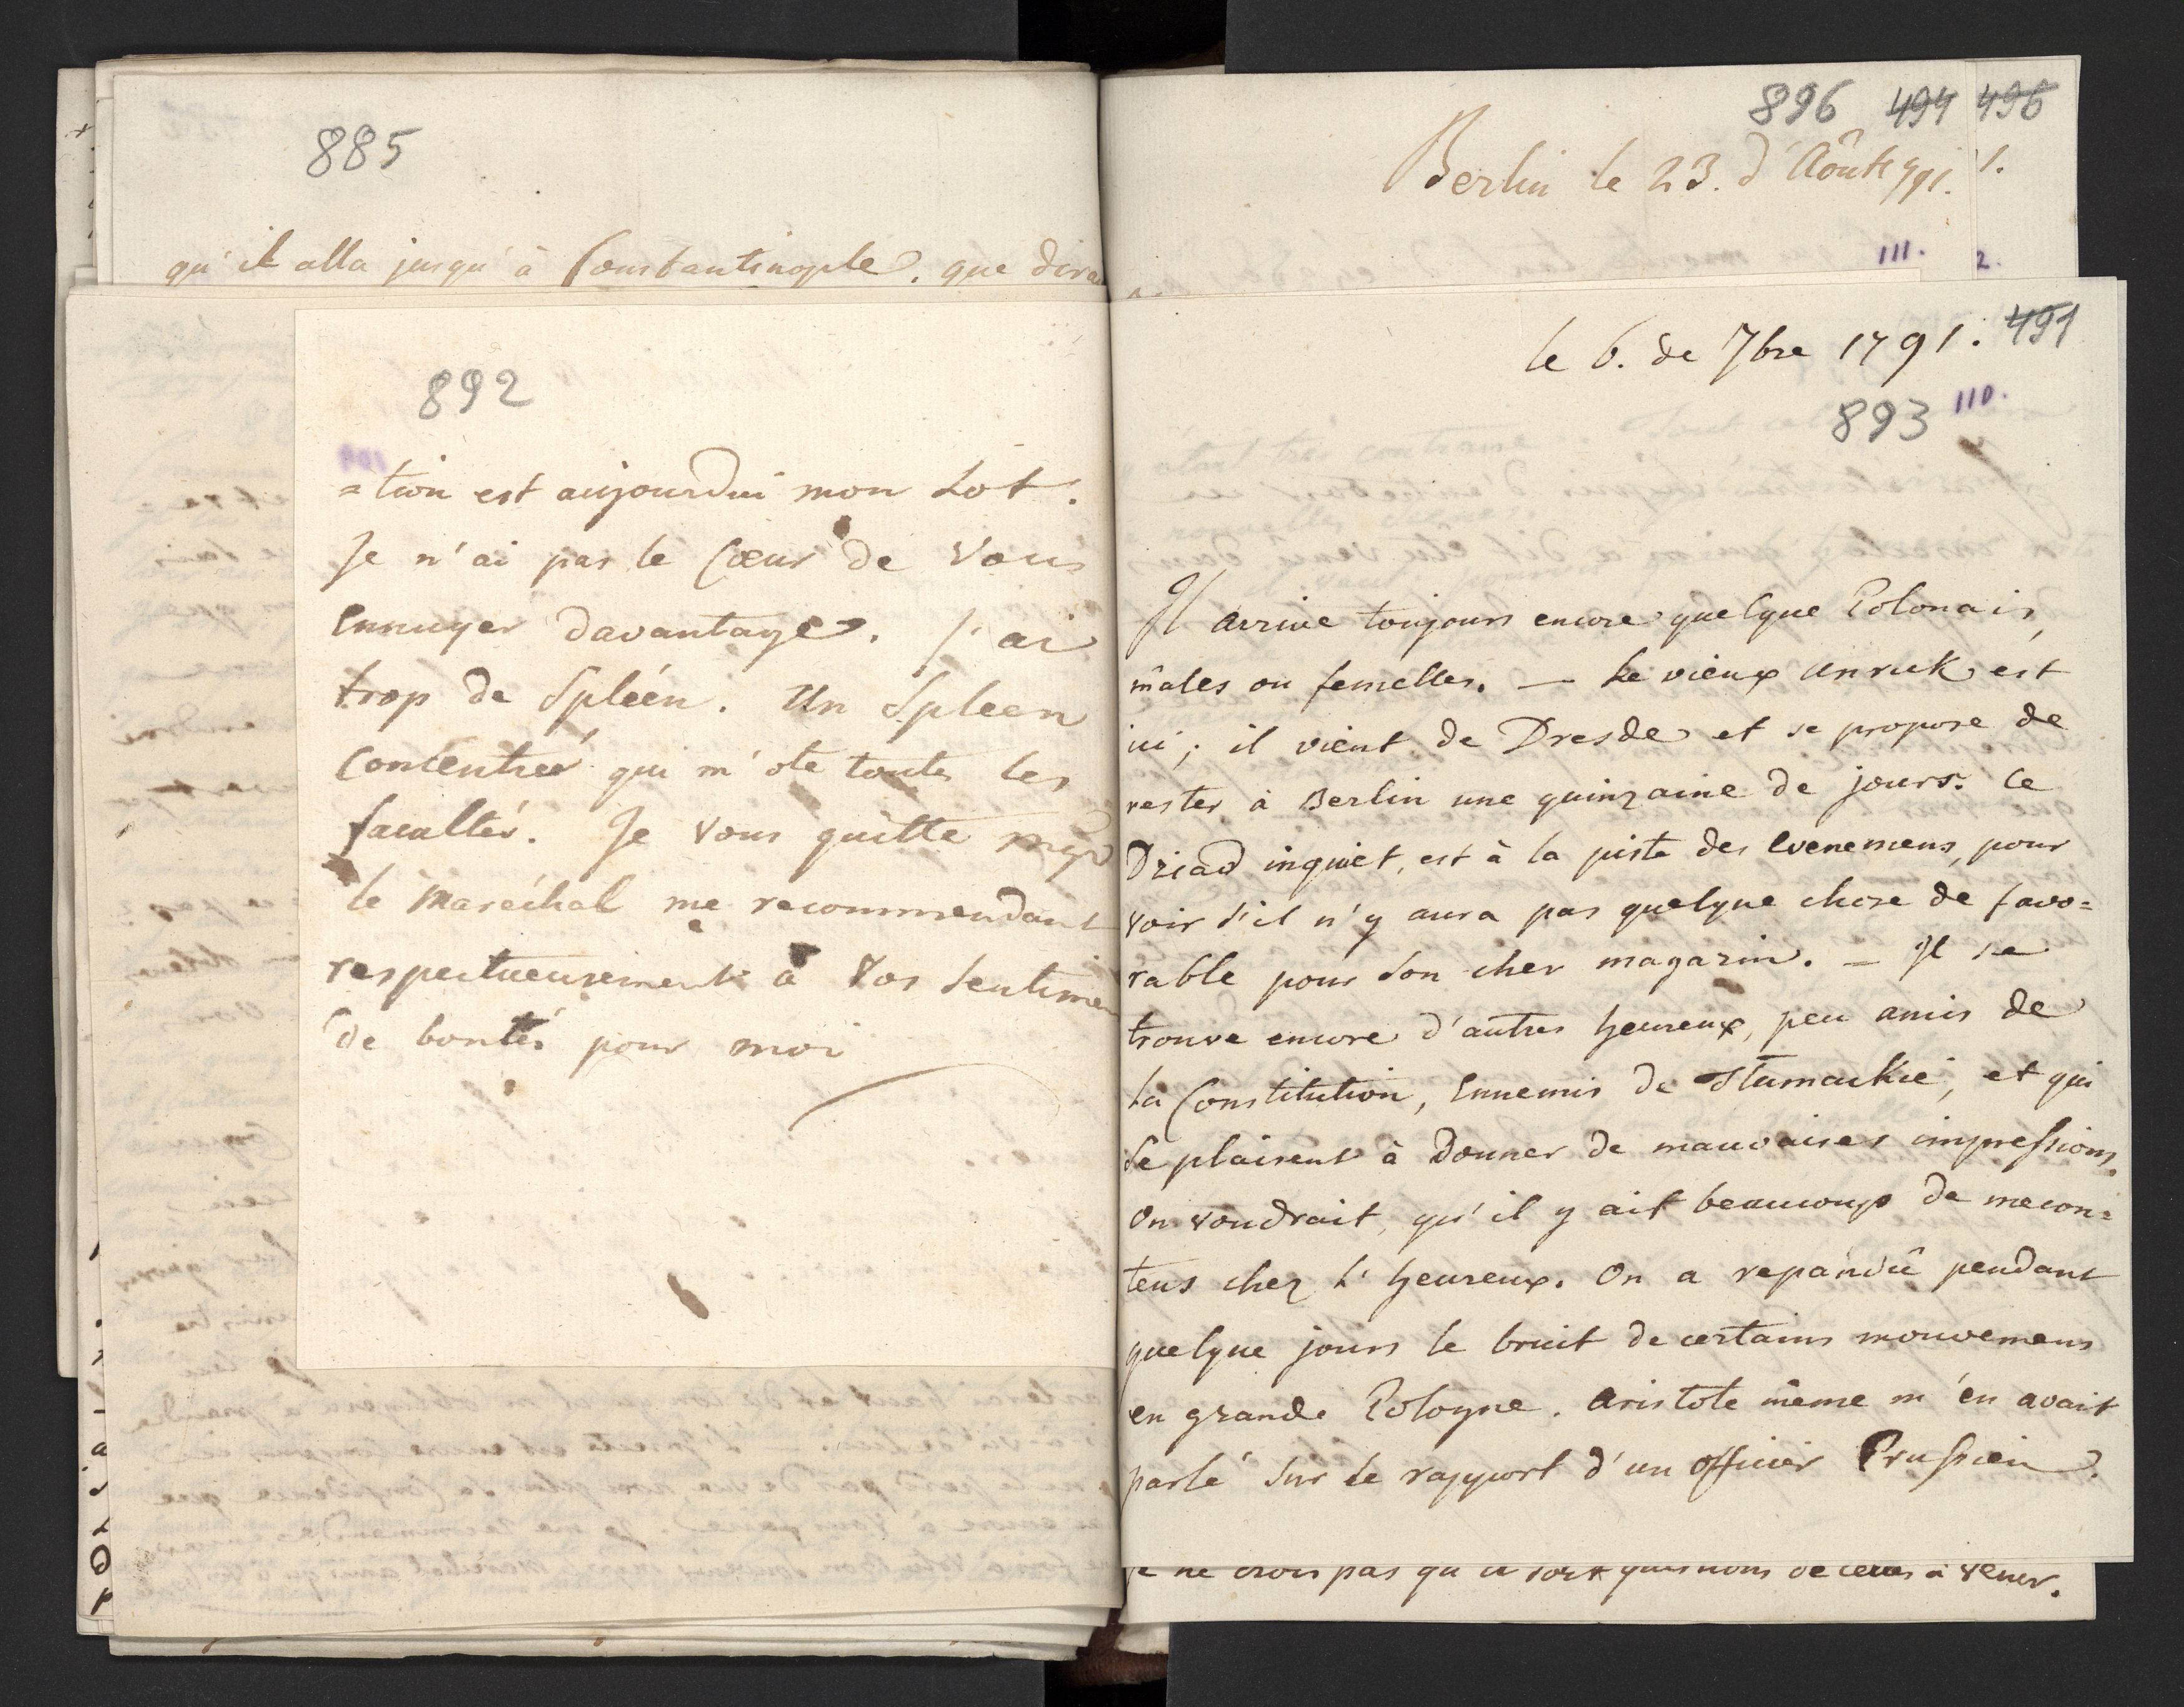 885
qu'il alla jusqu'à Constantinople. que dira
892
=tion est aujourdui mon Lot.
Je n'ai pas le Cœur de Vous
Ennuyer davantage. J'ai
trop de Spléen. Un Spleen
Concentrée qui m'ote toutes les
facultés. Je vous quitte
le Maréchal me recommendant
respectueusement à Vos Sentimen
de bontés pour moi
896 494 496
Berlin le 23. d'Aôut 791. 1.
111. 2.
le 6. de 7bre 1791. 491
893 110.
Il arrive toujours encore quelque Polonais,
mâles ou femelles. — Le vieux Unruk est
ici; il vient de Dresde et se propose de
rester à Berlin une quinzaine de jours. Ce
Driad inquiet, est à la piste des Evenemens, pour
voir s'il n'y aura pas quelque chose de favo=
rable pour Son cher magazin. = Il se
trouve encore d'autres heureux, peu amis de
La Constitution, Ennemis de, et qui
Se plaisent à Donner de mauvaises impressions.
On voudrait, qu'il y ait beaucoup de mecon=
tens chez L'heureux. On a repandû pendant
quelque jours le bruit de certains mouvemens
en grande Pologne. Aristote même m'en avait
parlé Sur le rapport d'un officier Prussien.
je ne crois pas qu'à venir.